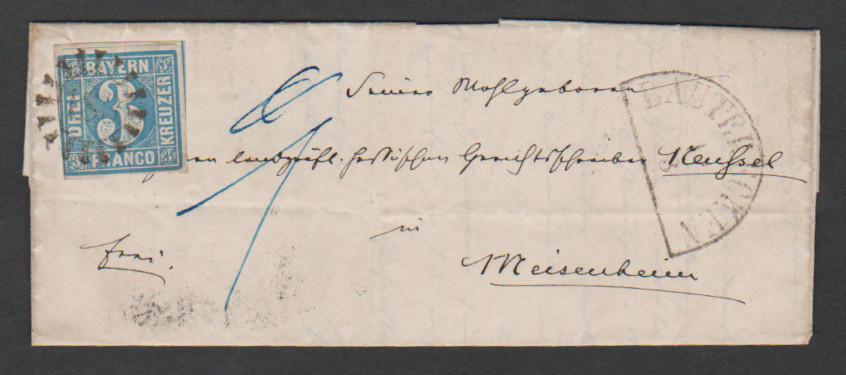 BAYERN
DREI 3 KREUZER
FRANCO
LAUTERECKEN
Seiner Wohlgeboren
Herrn landgräfl. hessischen Gerichtsschreiber Neussel
frei.
in
Meisenheim